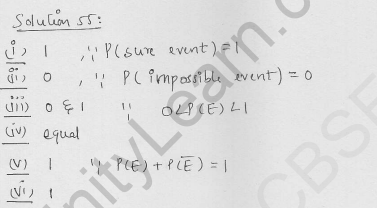 Solution 55:
(i) 1 , ∵ P(sure event) = 1
(ii) 0 , ∵ P(impossible event) = 0
(iii) 0 & 1 ∵ 0<P(E)<1
(iv) equal
(v) 1 ∵ P(E) + P(E̅) = 1
(vi) 1
nityLearn.c
CBSE